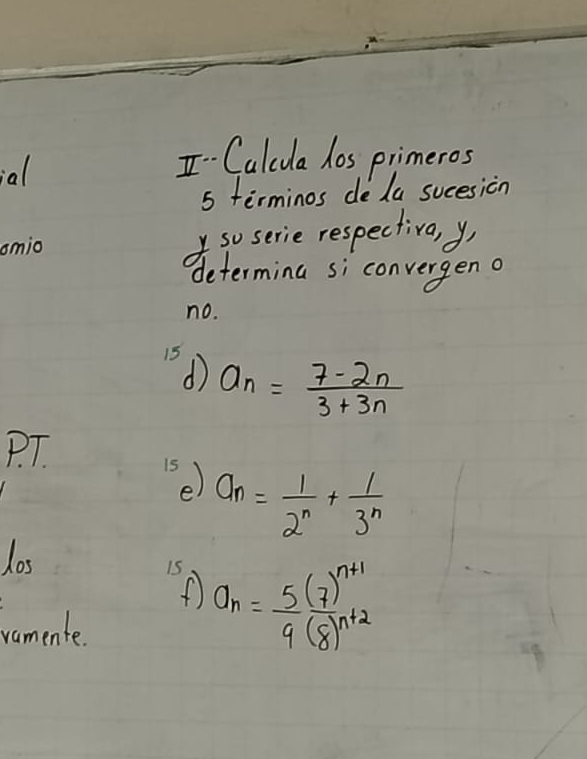 ial
omio
P.T.
los
vamente.
II-- Calcula los primeros
5 términos de la sucesión
y su serie respectiva, y,
determina si convergen o
no.
15 d) an = 7-2n / 3+3n
15 e) an = 1/2^n + 1/3^n
15 f) an = 5(7)^n+1 / 9(8)^n+2